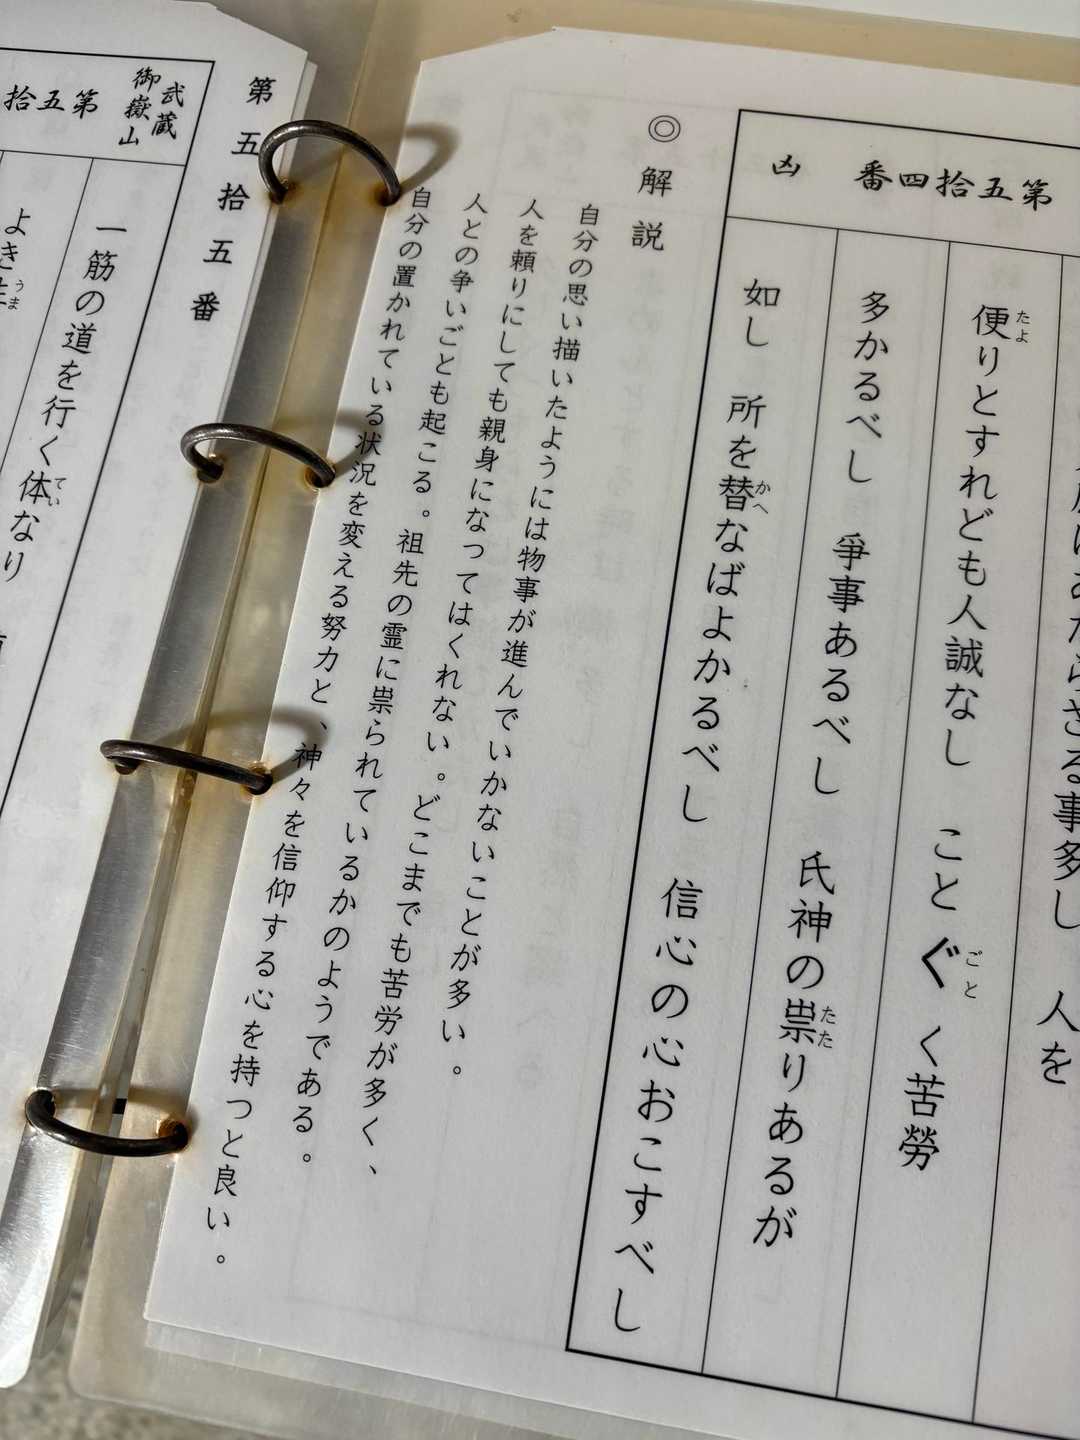 第五拾四番 凶
あたらざる事多し 人を
便りとすれども人誠なし ことぐごとく苦勞
多かるべし 爭事あるべし 氏神の祟りあるが
如し 所を替なばよかるべし 信心の心おこすべし
◎解説
自分の思い描いたようには物事が進んでいかないことが多い。
人を頼りにしても親身になってはくれない。どこまでも苦労が多く、
人との争いごとも起こる。祖先の霊に祟られているかのようである。
自分の置かれている状況を変える努力と、神々を信仰する心を持つと良い。
第五拾五番
武蔵御嶽山
第五拾
一筋の道を行く体なり
よき